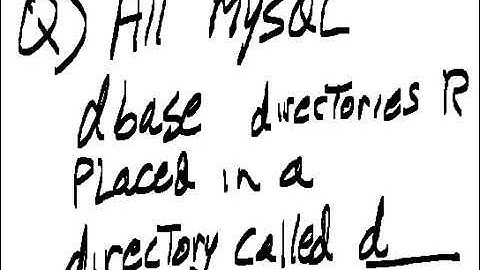 Q) All MySQL
dbase directories R
Placed in a
directory called d___